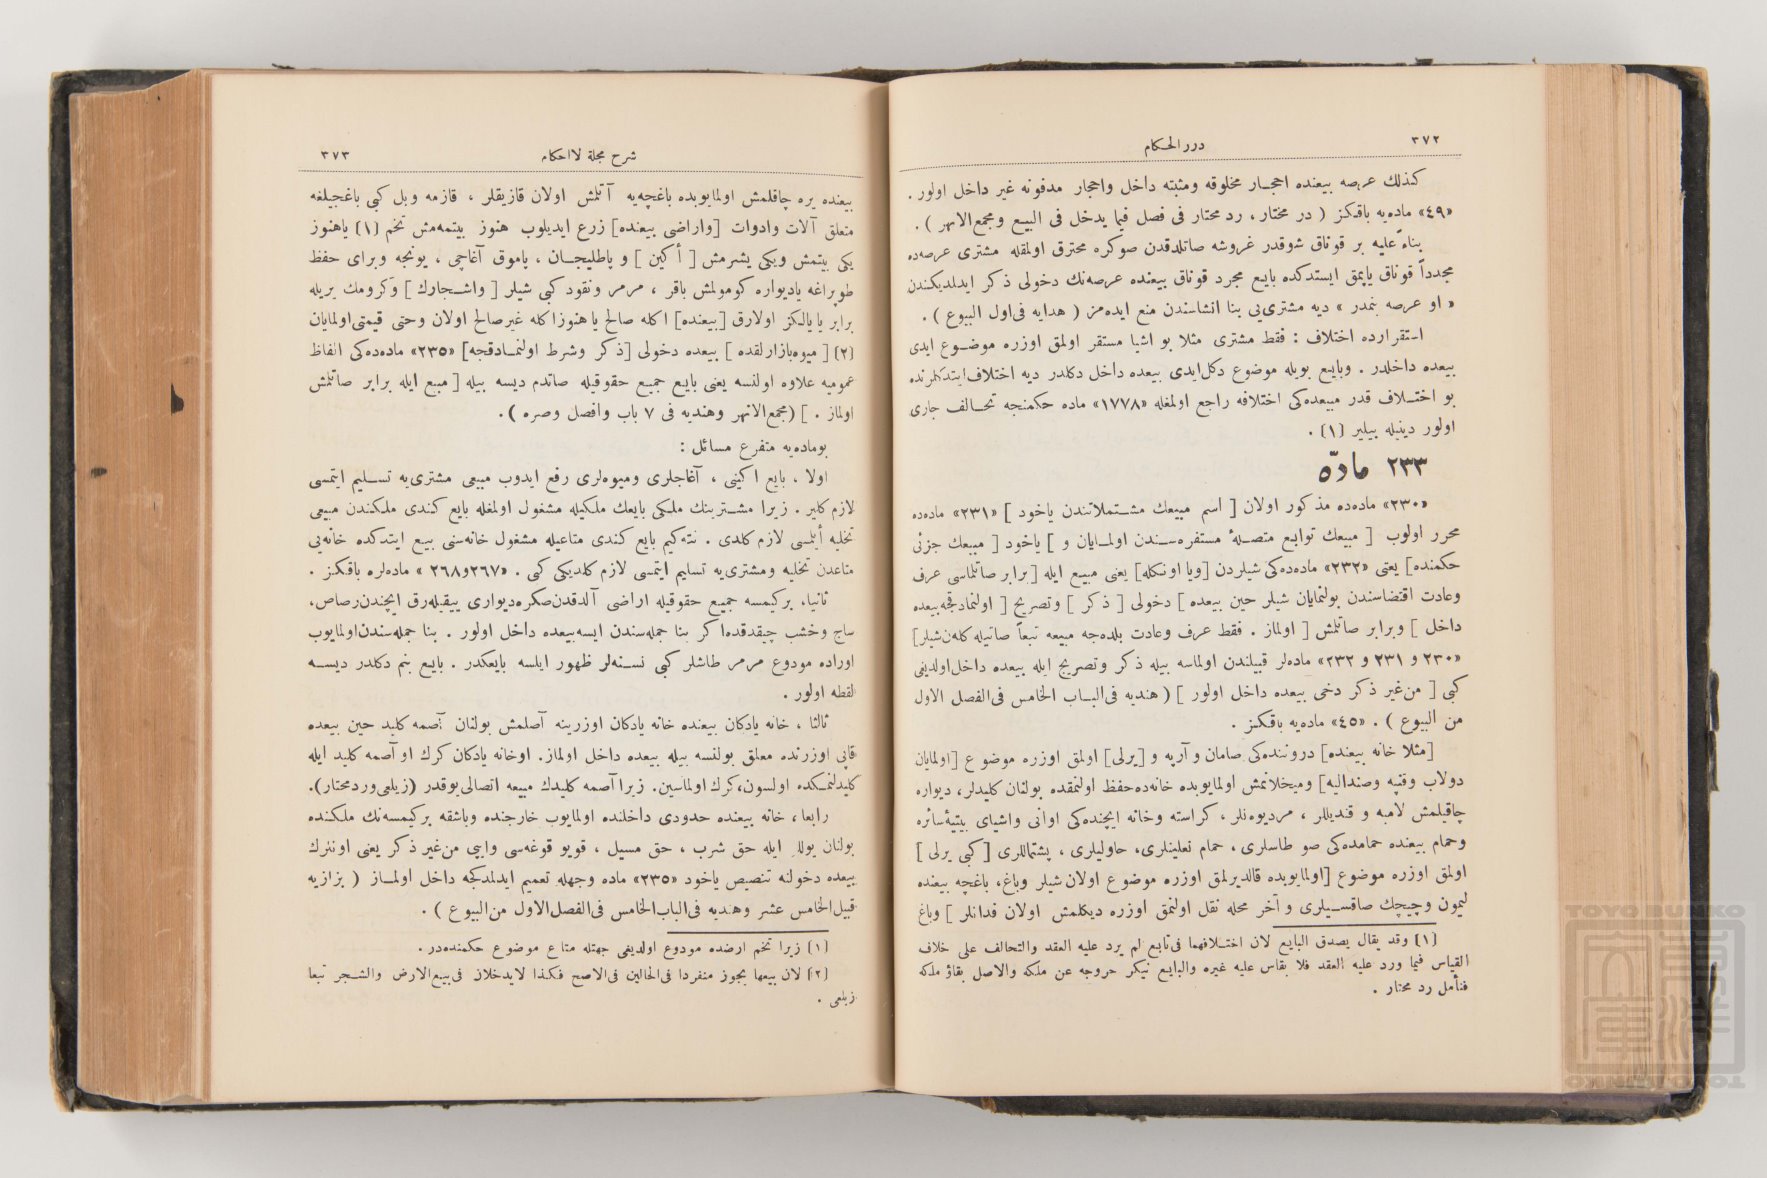 ٣٧٢
درر الحكام
كذلك عرصه بيعنده احجار مخلوقه ومثبته داخل واحجار مدفونه غير داخل اولور .
«٤٩» ماده‌يه باقكز ( در مختار ، رد محتار فى فصل فيما يدخل فى البيع ومجمع الانهر ) .
بناءً عليه بر قوناق شوقدر غروشه صاتلدقدن صوكره محترق اولمقله مشترى عرصه‌ده
مجدداً قوناق ياپمق ايستدكده بايع مجرد قوناق بيعنده عرصه‌نك دخولى ذكر ايدلديكندن
« او عرصه بنمدر » ديه مشترى‌يى بنا انشاسندن منع ايده‌مز ( هدايه فى اول البيوع ) .
استقرارده اختلاف : فقط مشترى مثلا بو اشيا مستقر اولمق اوزره موضوع ايدى
بيعده داخلدر . وبايع بويله موضوع دكل‌ايدى بيعده داخل دكلدر ديه اختلاف‌ايتدكلرنده
بو اختلاف قدر مبيعده‌كى اختلافه راجع اولمغله «١٧٧٨» ماده حكمنجه تحالف جارى
اولور دينيله بيلير (١) .
٢٣٣ مادّه
«٢٣٠» ماده‌ده مذكور اولان [ اسم مبيعك مشتملاتندن ياخود ] «٢٣١» ماده‌ده
محرر اولوب [ مبيعك توابع متصلۀ مستقره‌سندن اولمايان و ] ياخود [ مبيعك جزئى
حكمنده] يعنى «٢٣٢» ماده‌ده‌كى شيلردن [ويا اونكله] يعنى مبيع ايله [برابر صاتلماسى عرف
وعادت اقتضاسندن بولنمايان شيلر حين بيعده ] دخولى [ ذكر ] وتصريح [ اولنمادقجه بيعده
داخل ] وبرابر صاتلمش [ اولماز . فقط عرف وعادت بلده‌جه مبيعه تبعاً صاتيله كلەن‌شيلر]
«٢٣٠ و ٢٣١ و ٢٣٢» ماده‌لر قبيلندن اولماسه بيله ذكر وتصريح ايله بيعده داخل‌اولديغى
كبى [ من‌غير ذكر دخى بيعده داخل اولور ] ( هنديه فى‌الباب الخامس فى‌الفصل الاول
من البيوع ) . «٤٥» ماده‌يه باقكز .
[مثلا خانه بيعنده] درونده‌كى صامان و آرپه و [يرلى] اولمق اوزره موضوع [اولمايان
دولاب وقنپه وصنداليه] وميخلانمش اولمايوبده خانه‌ده حفظ اولنمقده بولنان كليدلر، ديواره
چاقيلمش لامبه و قنديللر ، مرديوەنلر ، كراسته وخانه ايچنده‌كى اوانى واشياى بيتيۀ سائره
وحمام بيعنده حمامده‌كى صو طاسلرى ، حمام نعلينلرى، حاوليلرى ، پشتماللرى [كبى يرلى ]
اولمق اوزره موضوع [اولمايوبده قالديرلمق اوزره موضوع اولان شيلر وباغ، باغچه بيعنده
ليمون وچيچك صاقسيلرى و آخر محله نقل اولنمق اوزره ديكلمش اولان فدانلر ] وباغ
(١) وقد يقال يصدق البايع لان اختلافهما فى تابع لم يرد عليه العقد والتحالف على خلاف
القياس فيما ورد عليه العقد فلا يقاس عليه غيره والبايع نيكر خروجه عن ملكه والاصل بقاؤ ملكه
فتأمل رد محتار .
شرح مجلة لااحكام
٣٧٣
بيعنده يره چاقلمش اولمايوبده باغچه‌يه آتلمش اولان قازيقلر ، قازمه وبل كبى باغجيلغه
متعلق آلات وادوات [واراضى بيعنده] زرع ايديلوب هنوز بيتمه‌مش تخم (١) ياهنوز
يكى بيتمش ويكى يشرمش [ أكين ] و پاطليجان ، پاموق آغاجى ، يونجه وبراى حفظ
طوپراغه ياديواره كومولمش باقر ، مرمر ونقود كبى شيلر [ واشجارك ] وكرومك يريله
برابر يا يالكز اولارق [بيعنده] اكله صالح يا هنوزاكله غيرصالح اولان وحتى قيمتى‌اولمايان
(٢) [ ميوه‌بازارلقده ] بيعده دخولى [ذكر وشرط اولنمادقجه] «٢٣٥» ماده‌ده‌كى الفاظ
عموميه علاوه اولنسه يعنى بايع جميع حقوقيله صاتدم ديسه بيله [ مبيع ايله برابر صاتلمش
اولماز . ] (مجمع‌الانهر وهنديه فى ٧ باب وافصل وصره ) .
بوماده‌يه متفرع مسائل :
اولا ، بايع اكينى ، آغاجلرى وميوه‌لرى رفع ايدوب مبيعى مشترى‌يه تسليم ايتمسى
لازم كلير . زيرا مشترينك ملكى بايعك ملكيله مشغول اولمغله بايع كندى ملكندن مبيعى
تخليه أيتمسى لازم كلدى . نته‌كيم بايع كندى متاعيله مشغول خانه‌سنى بيع ايتدكده خانه‌يى
متاعدن تخليه ومشترى‌يه تسليم ايتمسى لازم كلديكى كبى . «٢٦٧و٢٦٨ » ماده‌لره باقكز .
ثانيا، بركيمسه جميع حقوقيله اراضى آلدقدن‌صكره‌ديوارى ييقيله‌رق ايچندن‌رصاص،
ساج وخشب چيقدقده‌اكر بنا جمله‌سندن ايسه‌بيعده داخل اولور . بنا جمله‌سندن‌اولمايوب
اوراده مودوع مرمر طاشلر كبى نسنه‌لر ظهور ايلسه بايعكدر . بايع بنم دكلدر ديسه
لقطه اولور .
ثالثا ، خانه يادكان بيعنده خانه يادكان اوزرينه آصلمش بولنان آصمه كليد حين بيعده
قاپى اوزرنده معلق بولنسه بيله بيعده داخل اولماز. اوخانه يادكان كرك او آصمه كليد ايله
كليدلنمكده اولسون،كرك‌اولماسين. زيرا آصمه كليدك مبيعه اتصالى‌يوقدر (زيلعى‌وردمحتار).
رابعا ، خانه بيعنده حدودى داخلنده اولمايوب خارجنده وباشقه بركيمسه‌نك ملكنده
بولنان يوللر ايله حق شرب ، حق مسيل ، قويو قوغه‌سى وايپى من‌غير ذكر يعنى اونلرك
بيعده دخولنه تنصيص ياخود «٢٣٥» ماده وجهله تعميم ايدلمدكجه داخل اولماز ( بزازيه
قبيل‌الخامس عشر وهنديه فى‌الباب‌الخامس فى‌الفصل‌الاول من‌البيوع ) .
(١) زيرا تخم ارضده مودوع اولديغى جهتله متاع موضوع حكمنده‌در.
(٢) لان بيعها يجوز منفردا فى‌الحالين فى‌الاصح فكذا لايدخلان فى‌بيع‌الارض والشجر تبعا
زيلعى .
TOYO BUNKO